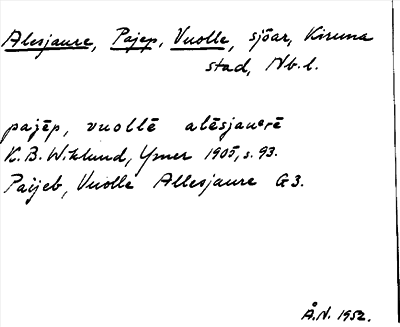 Alesjaure, Pajep, Vuolle, sjöar, Kiruna
stad, Nb. l.
pajēp, vuollē alēsjauᵉrē
K. B. Wiklund, Ymer 1905, s. 93.
Paijeb, Vuolle Allesjaure G3.
Å.N. 1952.